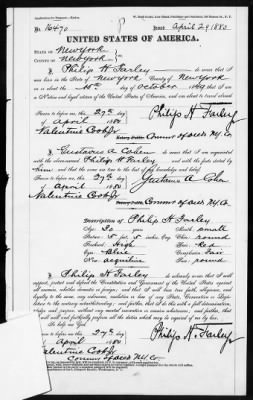 No. 16470 Issued April 29 1880
UNITED STATES OF AMERICA.
STATE OF New York
COUNTY OF New York
I, Philip H. Farley do swear that I
was born in the State of New York County of New York
on the day of October
a Native and legal citizen of the United States of America, and am about to travel abroad
Sworn to before me, this 27th day Philip H. Farley
of April 1880
Valentine Cook Jr.
Notary Public. Comr of Deeds N.Y. Co.
I, Gustave A. Cohn do swear that I am acquainted
with the above-named Philip H. Farley and with the facts stated by
him and that the same are true to the best of my knowledge and belief.
Sworn to before me, this 27th day Gustave A. Cohn
of April 1880
Valentine Cook Jr.
Notary Public. Comr of Deeds N.Y. Co.
Description of Philip H. Farley
Age: Mouth: small
Stature: 5 feet 5 inches, Eng. Chin: round
Forehead: High Hair: Red
Eyes: Blue Complexion: fair
Nose: aquiline Face: round
I, Philip H. Farley do solemnly swear that I will
support, protect and defend the Constitution and Government of the United States against
all enemies, whether domestic or foreign; and that I will bear true faith, allegiance, and
loyalty to the same, any ordinance, resolution or law of any State, Convention or Legis-
lature to the contrary notwithstanding; and further, that I do this with a full determination,
pledge and purpose, without any mental reservation or evasion whatsoever; and further, that
I will well and faithfully perform all the duties which may be required of me by law.
So help me God.
Sworn to before me, this 27th day Philip H. Farley
of April 1880
Valentine Cook Jr.
Comr of Deeds N.Y. Co.